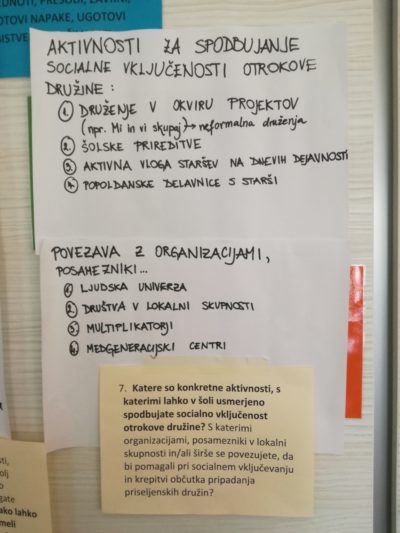 EDNOTI, PRESODI, ZAVRNI,
OTOVI NAPAKE, UGOTOVI
BISTVE
AKTIVNOSTI ZA SPODBUJANJE
SOCIALNE VKLJUČENOSTI OTROKOVE
DRUŽINE:
1. DRUŽENJE V OKVIRU PROJEKTOV
(npr. Mi in vi skupaj) → neformalna druženja
2. ŠOLSKE PRIREDITVE
3. AKTIVNA VLOGA STARŠEV NA DNEVIH DEJAVNOSTI
4. POPOLDANSKE DELAVNICE S STARŠI
POVEZAVA Z ORGANIZACIJAMI,
POSAMEZNIKI...
1. LJUDSKA UNIVERZA
2. DRUŠTVA V LOKALNI SKUPNOSTI
3. MULTIPLIKATORJI
4. MEDGENERACIJSKI CENTRI
7. Katere so konkretne aktivnosti, s
katerimi lahko v šoli usmerjeno
spodbujate socialno vključenost
otrokove družine? S katerimi
organizacijami, posamezniki v lokalni
skupnosti in/ali širše se povezujete, da
bi pomagali pri socialnem vključevanju
in krepitvi občutka pripadanja
priseljenskih družin?
sti,
olj
o
gate
ako lahko
meli